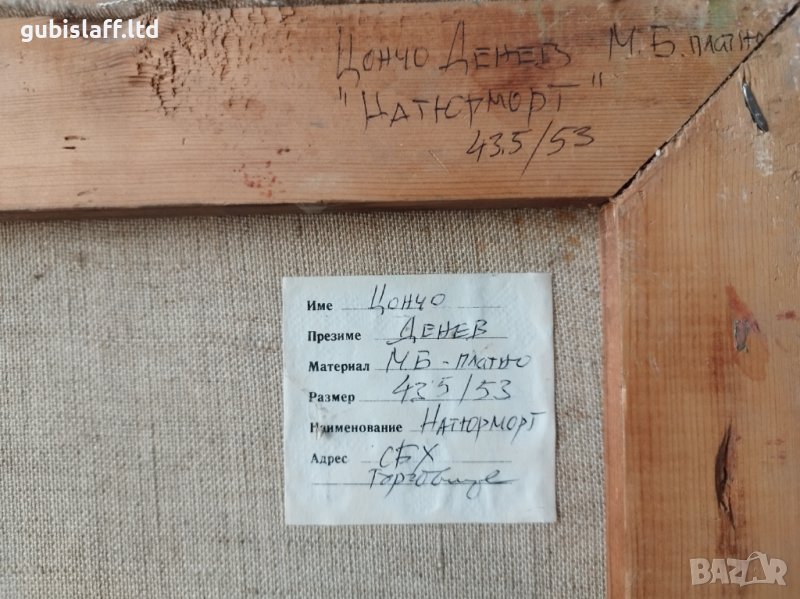 gubislaff.ltd
Цончо Денев М.Б. платно
"Натюрморт"
43.5/53
Име Цончо
Презиме Денев
Материал М.Б - платно
Размер 43.5/53
Наименование Натюрморт
Адрес СБХ
Търговище
BAZAR